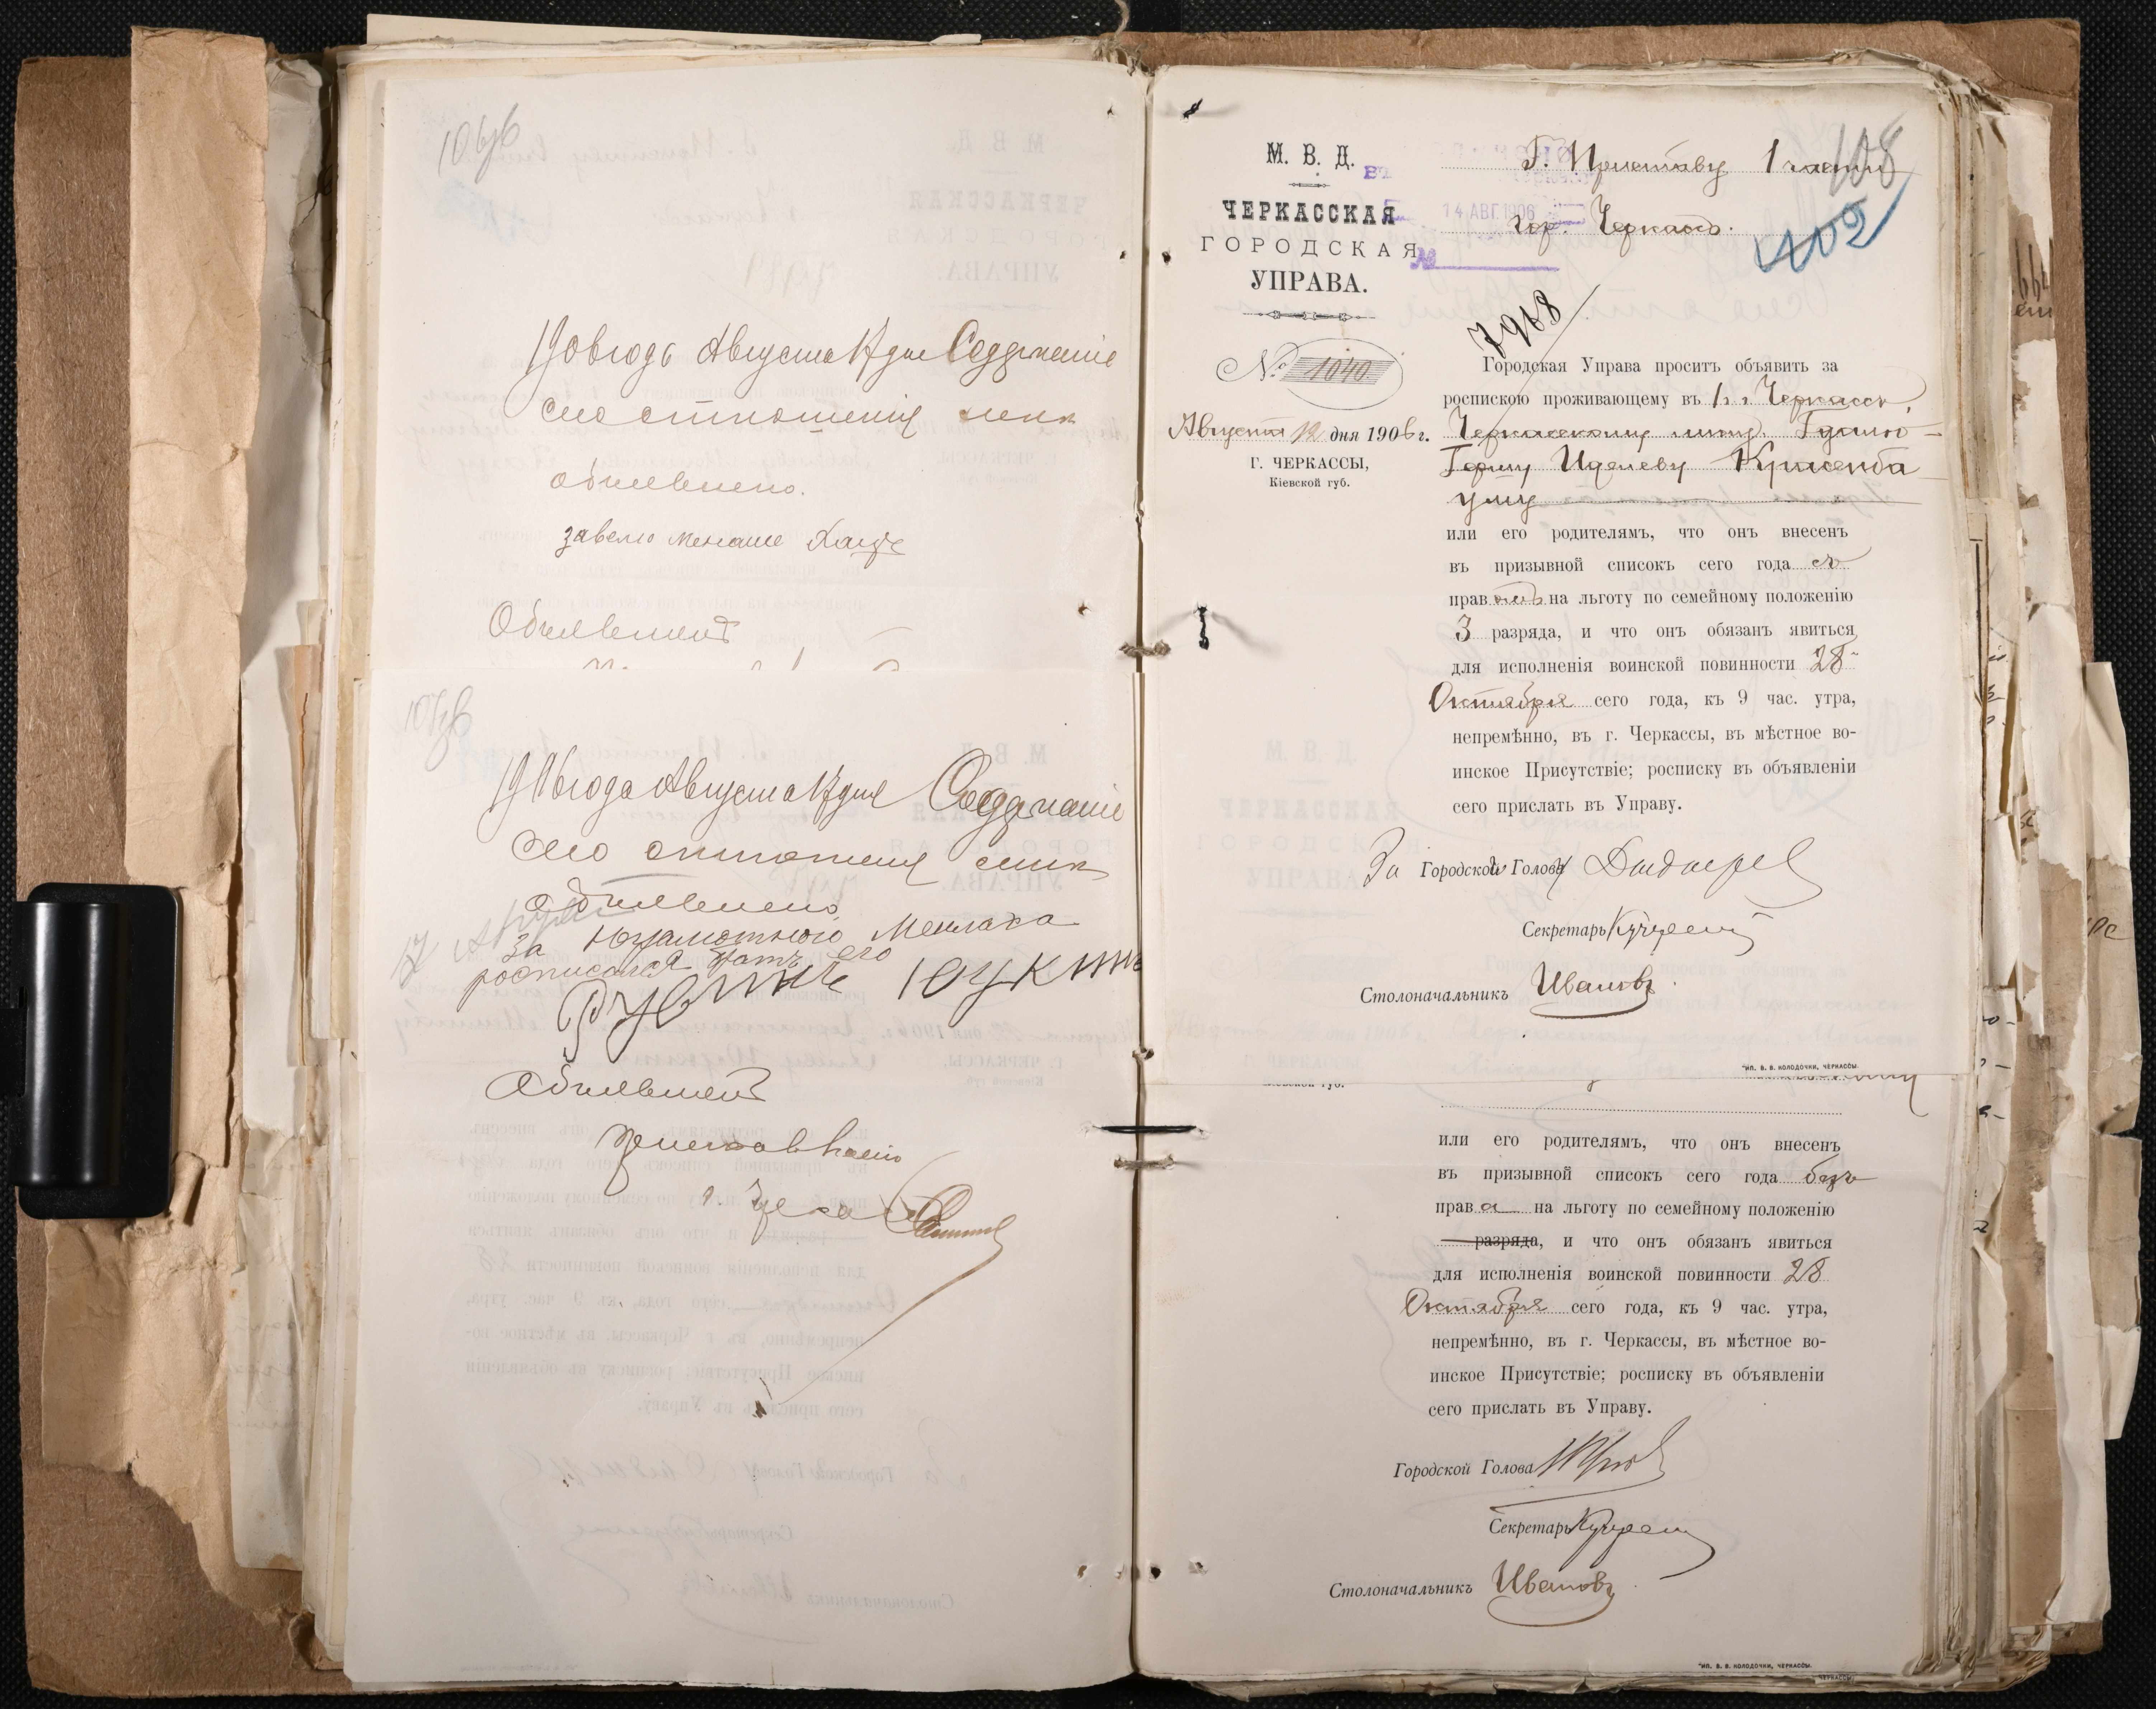 106об
1906 года Августа 17 дня Содержаніе
сего отношенія мнѣ
объявлено.
Объявилъ
107об
1906 года Августа 17 дня Содержаніе
сего отношенія мнѣ
объявлено
За неграмотного
росписался братъ его
Рувинъ
Объявилъ
М. В. Д.
ЧЕРКАССКАЯ
ГОРОДСКАЯ
УПРАВА.
№ 1040
Августа 12 дня 1906 г.
Г. ЧЕРКАССЫ,
Кіевской губ.
Г. Приставу 1 части
гор. Черкассъ.
14 АВГ 1906
№
108
102
7968
Городская Управа проситъ объявить за
роспискою проживающему въ г. Черкассы,
Черкасскому мѣщ.
уму
или его родителямъ, что онъ внесенъ
въ призывной списокъ сего года съ
правомъ на льготу по семейному положенію
3 разряда, и что онъ обязанъ явиться
для исполненія воинской повинности 28
Октября сего года, къ 9 час. утра,
непремѣнно, въ г. Черкассы, въ мѣстное во-
инское Присутствіе; росписку въ объявленіи
сего прислать въ Управу.
За Городского Голову
Секретарь
Столоначальникъ Ивановъ
Тип. В. В. КОЛОДОЧКИ, ЧЕРКАССЫ.
или его родителямъ, что онъ внесенъ
въ призывной списокъ сего года безъ
права на льготу по семейному положенію
разряда, и что онъ обязанъ явиться
для исполненія воинской повинности 28
Октября сего года, къ 9 час. утра,
непремѣнно, въ г. Черкассы, въ мѣстное во-
инское Присутствіе; росписку въ объявленіи
сего прислать въ Управу.
Городской Голова
Секретарь
Столоначальникъ Ивановъ
Тип. В. В. КОЛОДОЧКИ, ЧЕРКАССЫ.